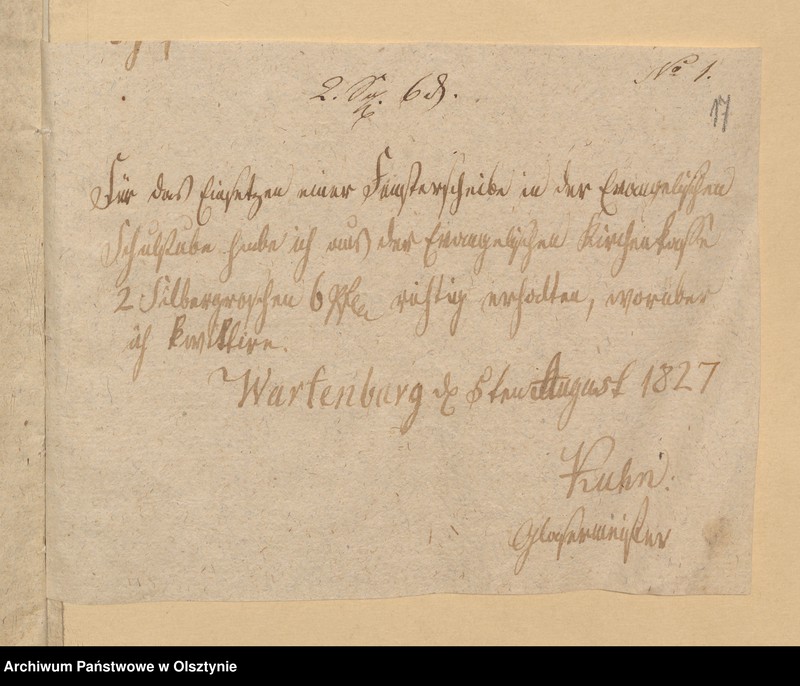 No 1.
2. Sgr. 6 ₰.
17
Für das Einsetzen einer Fensterscheibe in der Evangelischen
Schulstube habe ich aus der Evangelischen Kirchenkasse
2 Silbergroschen 6 Pfen richtig erhalten, worüber
ich kwittire.
Wartenburg d 5ten August 1827
Kuhn.
Glasermeister
Archiwum Państwowe w Olsztynie